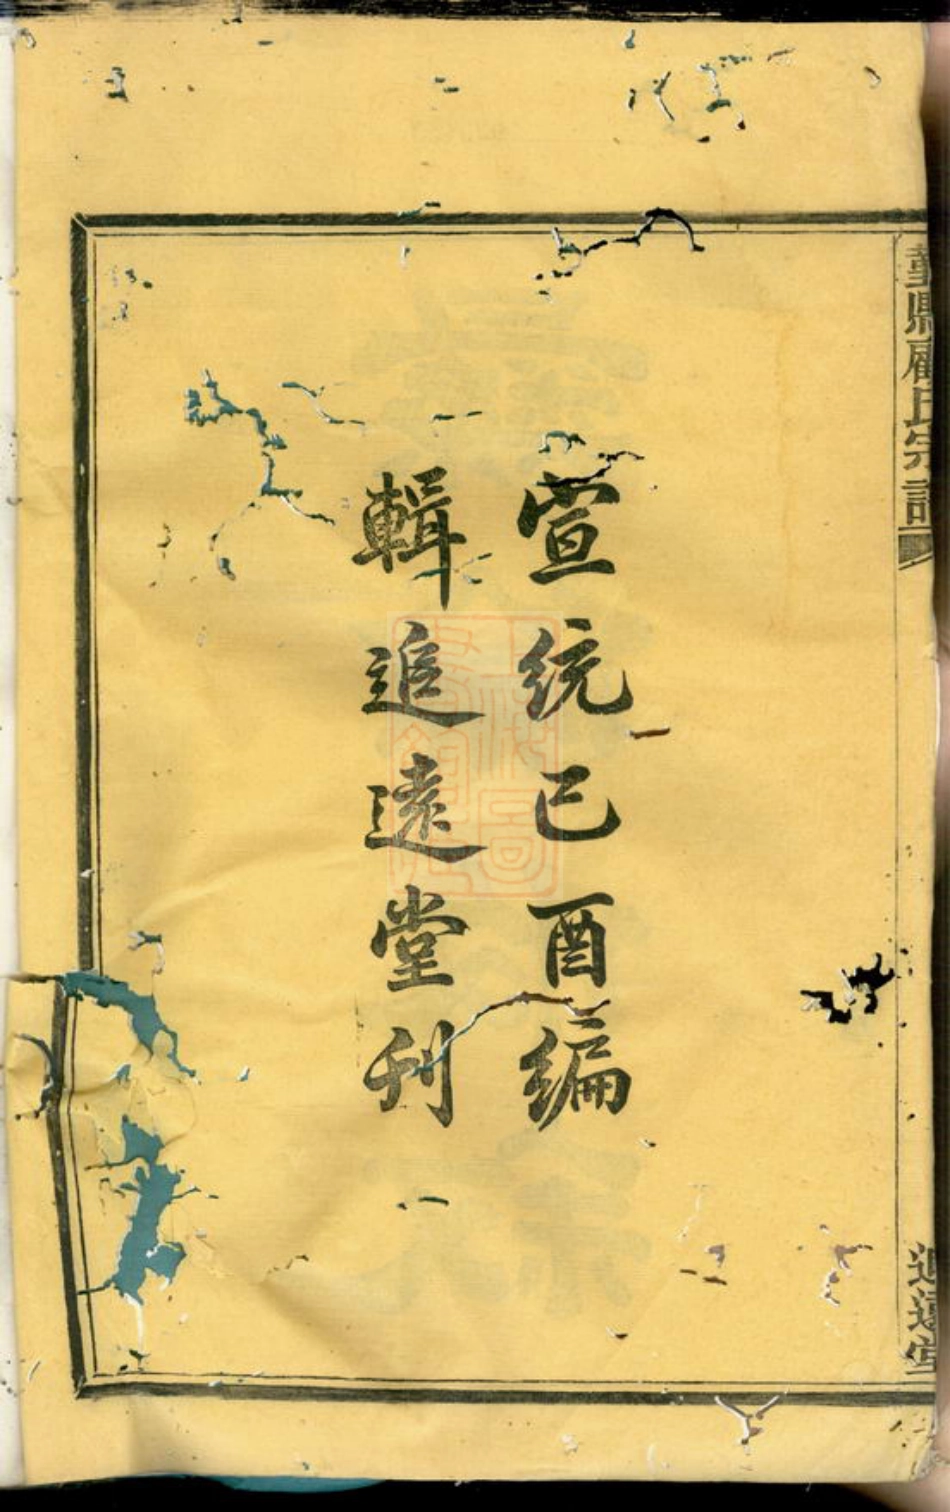 鄞縣顧氏宗譜
追遠堂
宣統己酉編
輯追遠堂刊